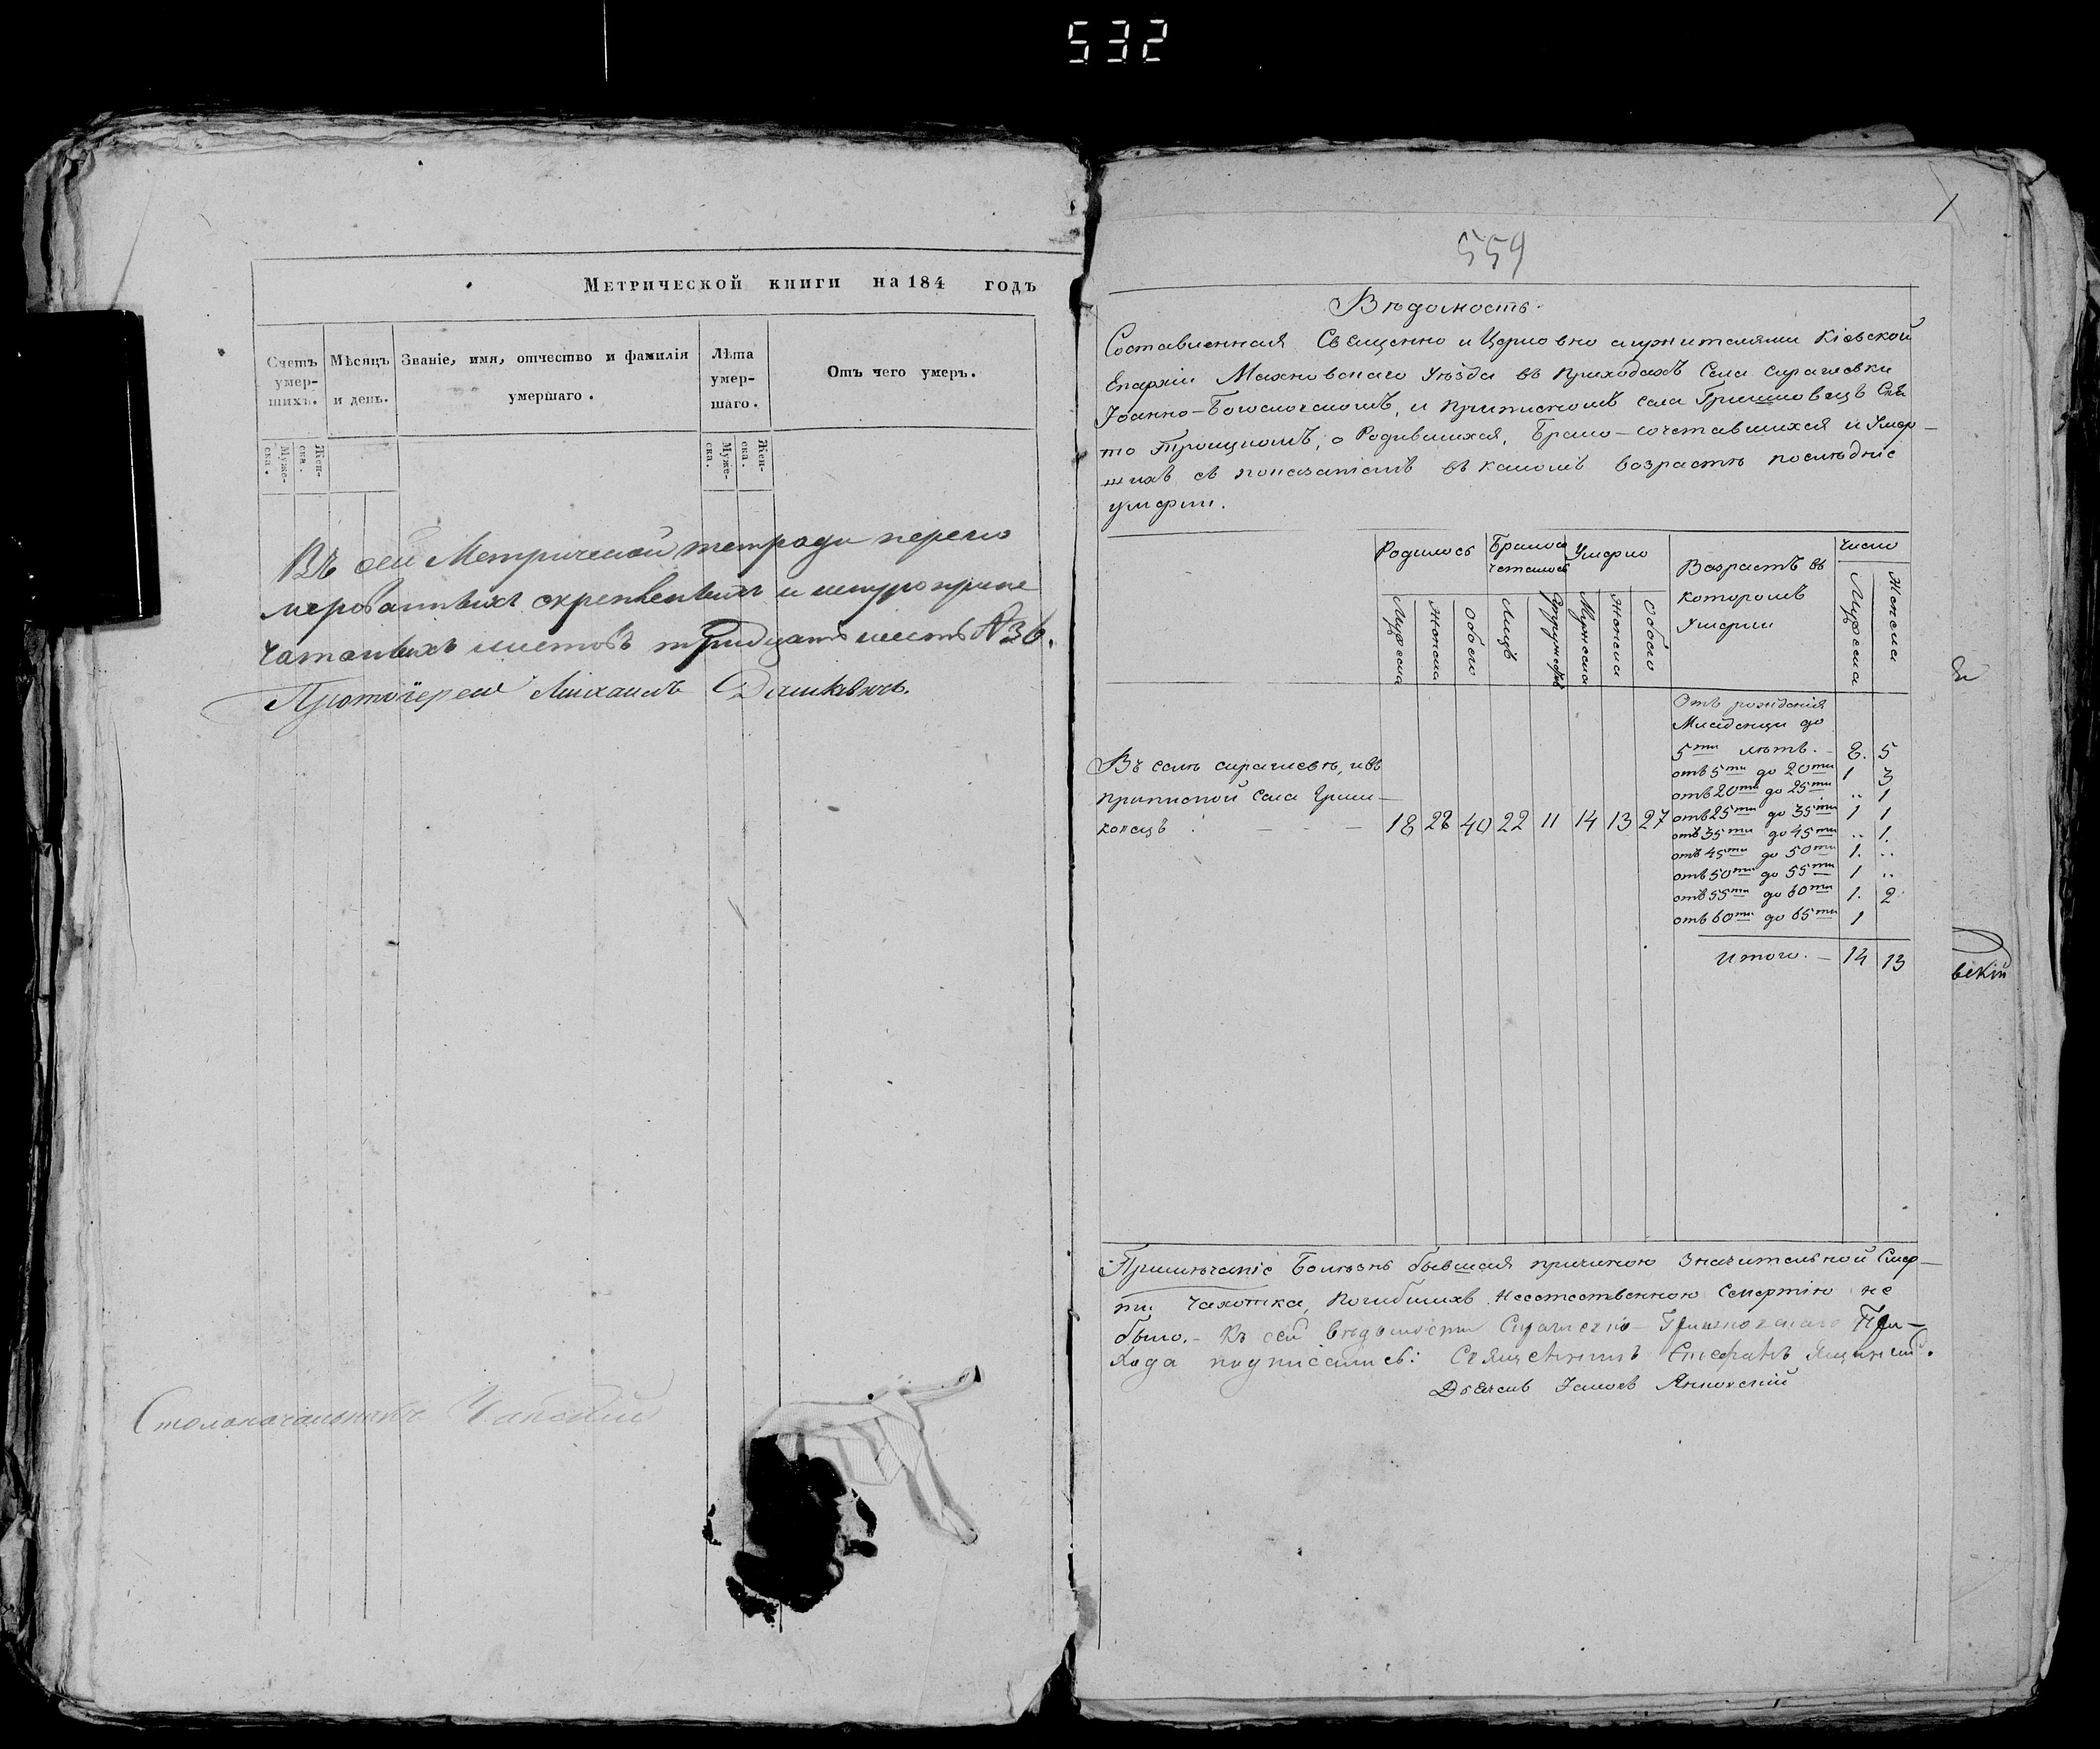 532
Метрической книги на 184 годъ
Счетъ умер-шихъ.
Мѣсяцъ и день.
Званіе, имя, отчество и фамилія умершаго.
Лѣта умер-шаго.
Отъ чего умеръ.
Муже-ска.
Жен-ска.
Муже-ска.
Жен-ска.
Въ сей Метрической тетради перено
мерованныхъ скрепленныхъ и шнуроприпе
чатанныхъ листовъ тридцать шесть №36.
Протоіерей Михаилъ Дашкевичъ.
Столоначальникъ
559
Вѣдомость.
Составленная Священно и Церковно служителями Кіевской
Епархіи Махновскаго Уѣзда въ приходахъ Села
Іоанно-Богословскомъ, и приписномъ села Свя
то Троицкомъ, о Родившихся, Брако-сочетавшихся и Умер-
шихъ съ показаніемъ въ какомъ возрастѣ послѣдніе
умерли.
Родилось
Брако сочеталось
Умерло
Возрастъ въ которомъ Умерли
Число
Мужеска
Женска
Обоего
Лицъ
Супружествъ
Мужеска
Женска
Обоего
Мужеска
Женска
Отъ рожденія
Младенцы до
5ти лѣтъ. - 8. 5
отъ 5ти до 20ти 1 3
отъ 20ти до 25ти .. 1
отъ 25ти до 35ти 1 1
отъ 35ти до 45ти .. 1.
отъ 45ти до 50ти 1. ..
отъ 50ти до 55ти 1 ..
отъ 55ти до 60ти 1. 2
отъ 60ти до 65ти 1
Итого. - 14 13
Въ селѣ и въ
приписной села
18 22 40 22 11 14 13 27
Примѣчаніе Болѣзнь бывшая причиною значительной Смер-
ти Чахотка, погибшихъ неестественною Смертію не
было. - Къ сей вѣдомости При-
хода подписались: Священникъ Стефанъ
Дьячекъ Яновскій
вскій